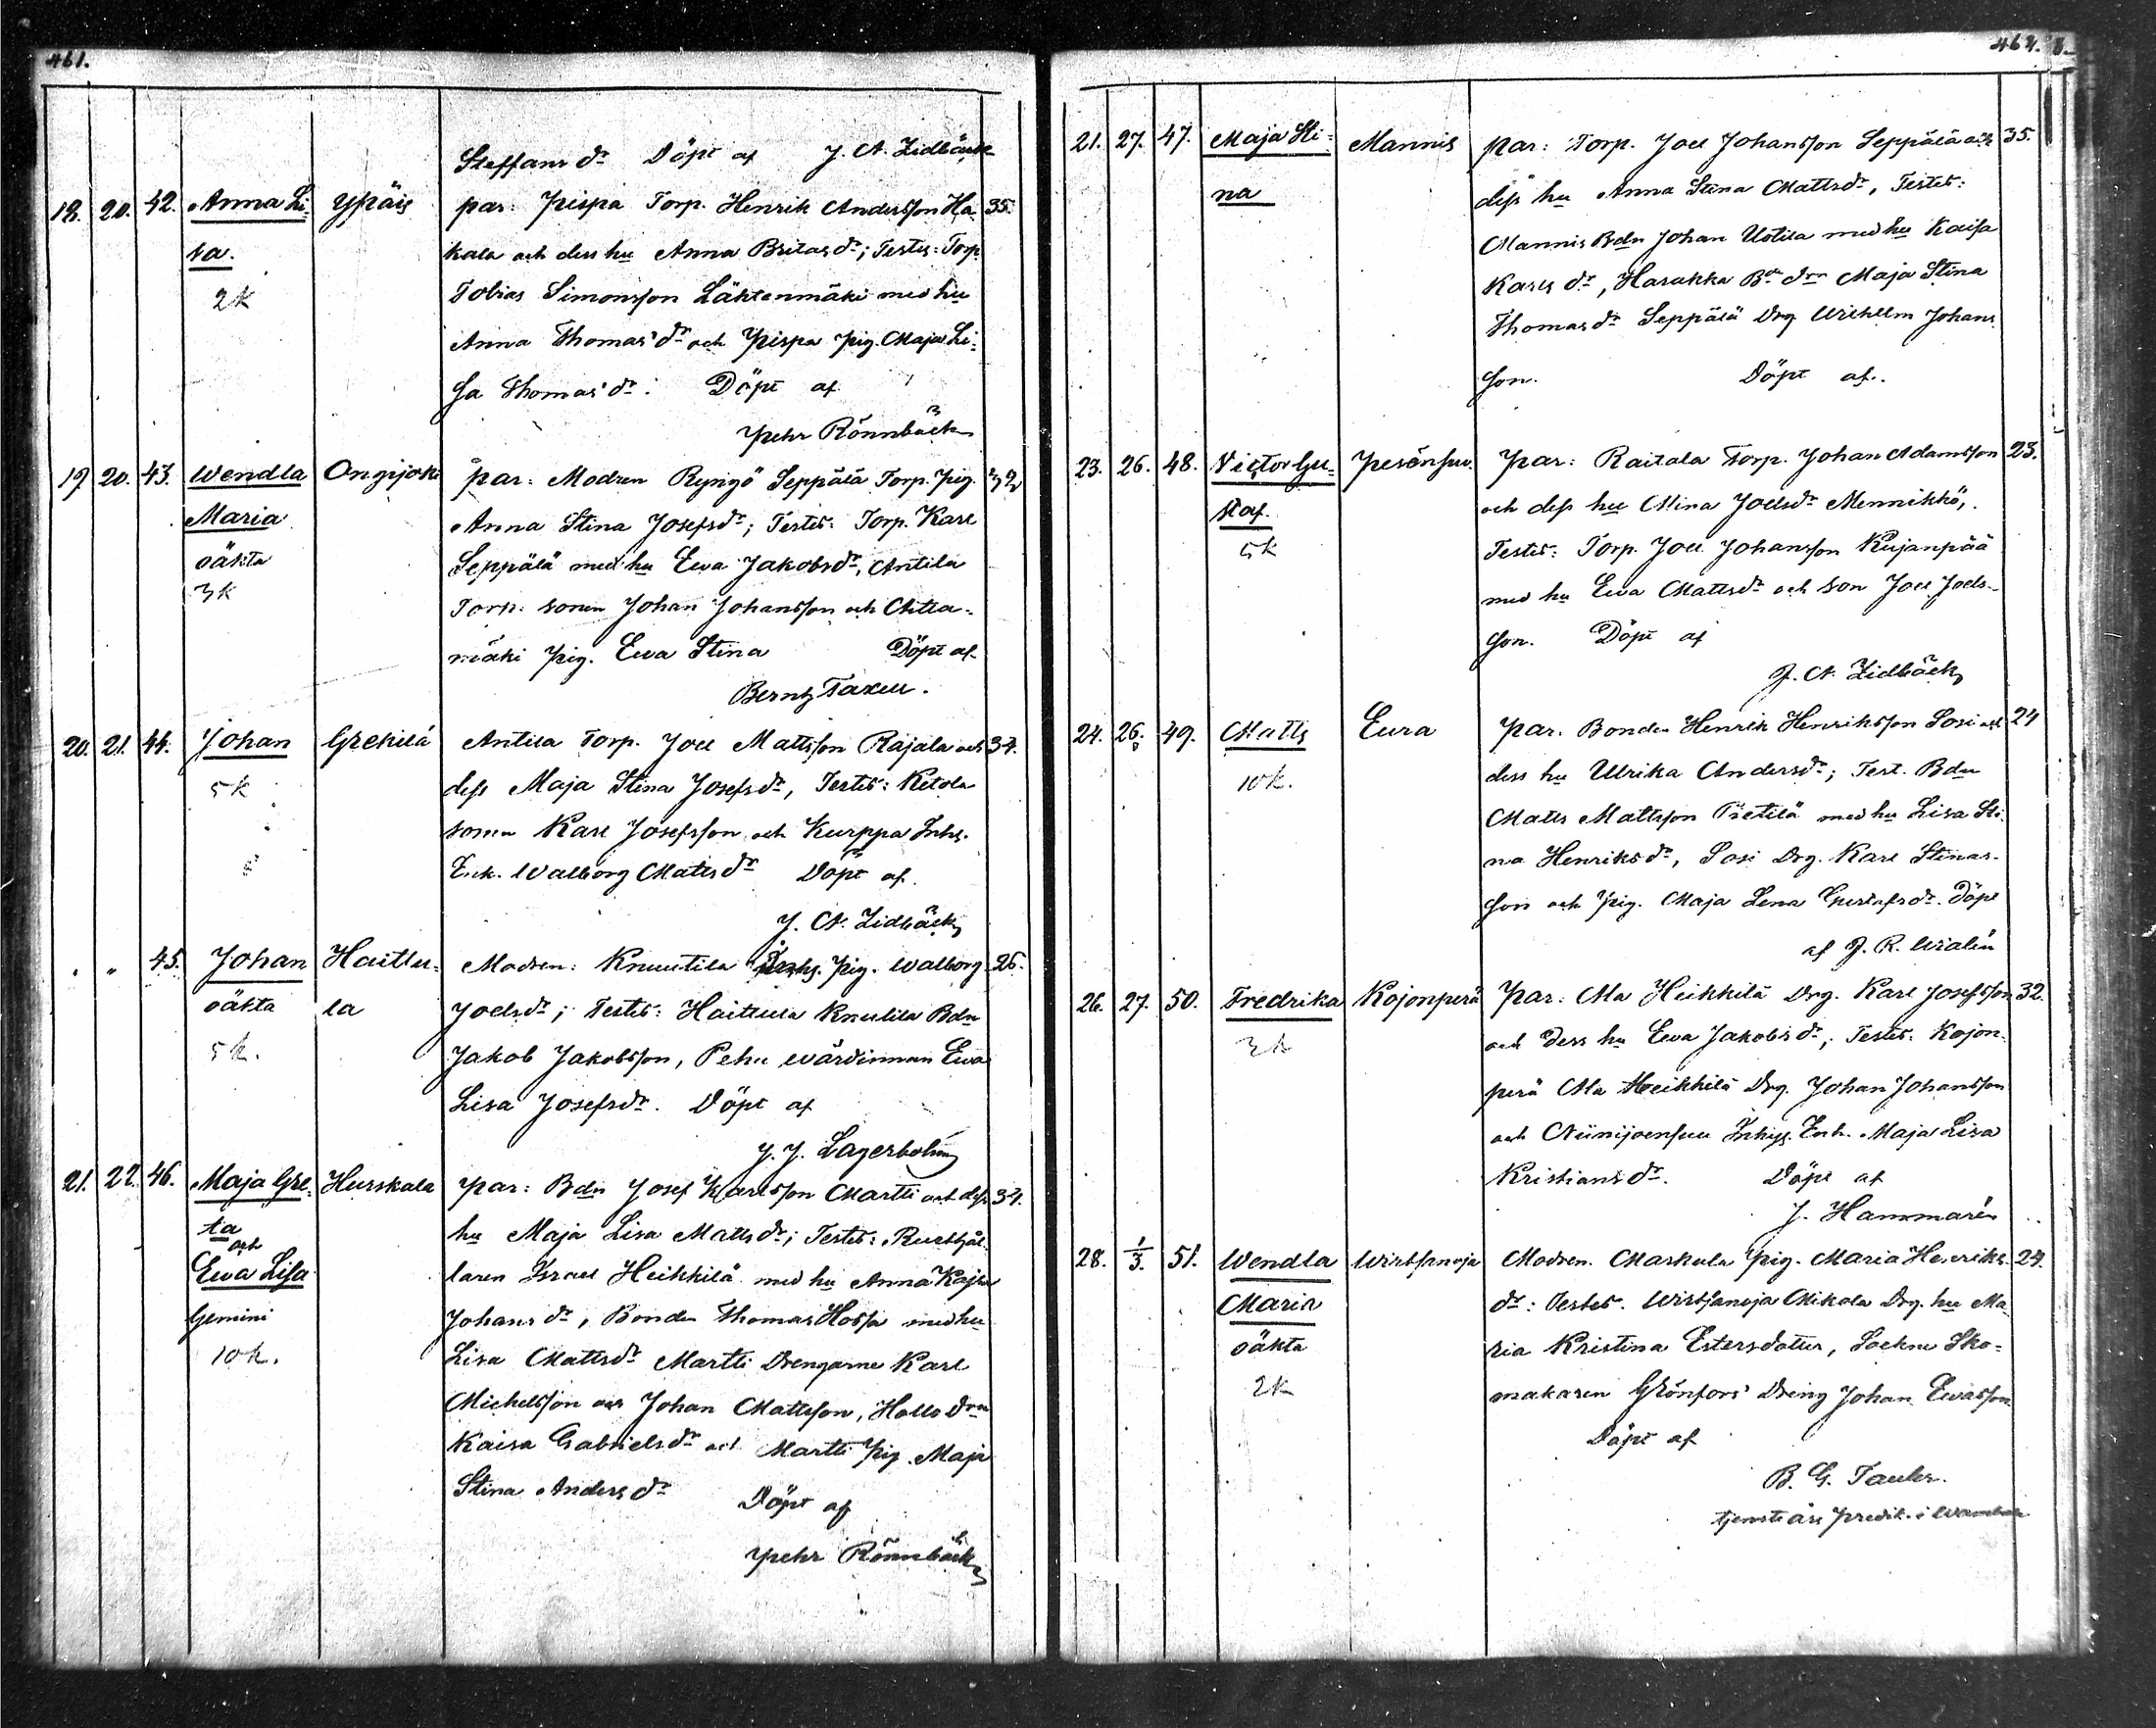 461.
Steffans dr Döpt af J. A. Lidbäck
18. 20. 42. Anna Li- Ypäis par: Pispa Torp. Henrik Andersson Ha- 35.
sa. kala och dess hu Anna Britas dr; Testes: Torp.
2k Tobias Simonsson Lähtenmäki med hu
Anna Thomas dr och Pispa pig. Maja Li-
sa Thomas dr. Döpt af
Pehr Rönnbäck
19 20. 43. Wendla Ongijoki par: Modren Ryngö Seppälä Torp. pig.
Maria Anna Stina Josefs dr; Testes: Torp. Karl
oäkta Seppälä med hu Ewa Jakobs dr, Antila
3k Torp. sonen Johan Johansson och
mäki pig. Ewa Stina Döpt af
Bernh Taxell.
20. 21. 44. Johan Grekilä Antila Torp. Joel Mattsson Rajala och 34.
5k dess Maja Stina Josefs dr, Testes: Ketola
sonen Karl Josefsson och Kurppa Inhs.
Enk. Walborg Matts dr Döpt af
J. A. Lidbäck
" " 45. Johan Haittu- Modren: Knuutila Inhs. pig. Walborg 26.
oäkta la Joels dr; Testes: Haittula Knutila Bdn
5k. Jakob Jakobsson, Pehu wärdinnan Ewa
Lisa Josefs dr. Döpt af
J. J. Lagerholm
21. 22. 46. Maja Gre- Hurskala par: Bdn Josef Karlsson Martti och dess 34.
ta och hu Maja Lisa Matts dr; Testes: Rusthål-
Ewa Lisa laren Israel Heikkilä med hu Anna Kajsa
Gemini Johans dr, Bonden Thomas Hossa med hu
10k. Lisa Matts dr Martti Drengarne Karl
Michelsson och Johan Mattsson, Hollo drn
Kaisa Gabriels dr och Martti Pig. Maja
Stina Anders dr Döpt af
Pehr Rönnbäck
462.
21. 27. 47. Maja Sti- Mannis par: Torp. Joel Johansson Seppälä och 35.
na dess hu Anna Stina Matts dr, Testes:
Mannis Bdn Johan Uotila med hu Kaisa
Karls dr, Harakka Bde drn Maja Stina
Thomas dr Seppälä Drg Wilhelm Johans-
son. Döpt af.
23. 26. 48. Victor Gu- Pesänsuu. par: Raitala Torp. Johan Adamsson 23.
staf och dess hu Mina Joels dr Mennikkö,
5k Testes: Torp. Joel Johansson Kujanpää
med hu Ewa Matts dr och son Joel Joels-
son. Döpt af
J. A. Lidbäck
24. 26. 49. Matts Eura par. Bonden Henrik Henriksson Sosi och 24
10k. dess hu Ulrika Anders dr; Test. Bdn
Matts Mattsson Pietilä med hu Lisa Sti-
na Henriks dr, Sosi Drg. Karl Stinas-
son och Pig. Maja Lena Gustafs dr. Döpt
af J. R. Walén
26. 27. 50. Fredrika Kojonperä Par: Ala Heikkilä Drg. Karl Josefsson 32.
3k och Dess hu Ewa Jakobs dr; Testes: Kojon-
perä Ala Heikkilä Drg. Johan Johansson
och Niinijoensuu Inhys. Enk. Maja Lisa
Kristians dr. Döpt af
J. Hammarén
28. 1/3. 51. Wendla Wirtsanoja Modren. Markula Pig. Maria Henriks 24.
Maria dr: Testes. Wirtsanoja Mikola Drg. hu Ma-
oäkta ria Kristina Estersdotter, Sockne Sko-
2k makaren Grönfors' Dreng Johan Ewasson
Döpt af
B. G. Tauler.
tjenste års predik. i